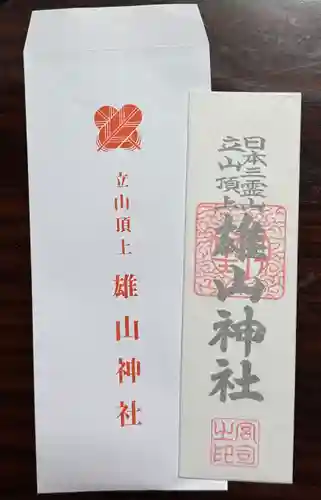 立山頂上 雄山神社
日本三霊山
立山頂上
雄山神社
宮司之印